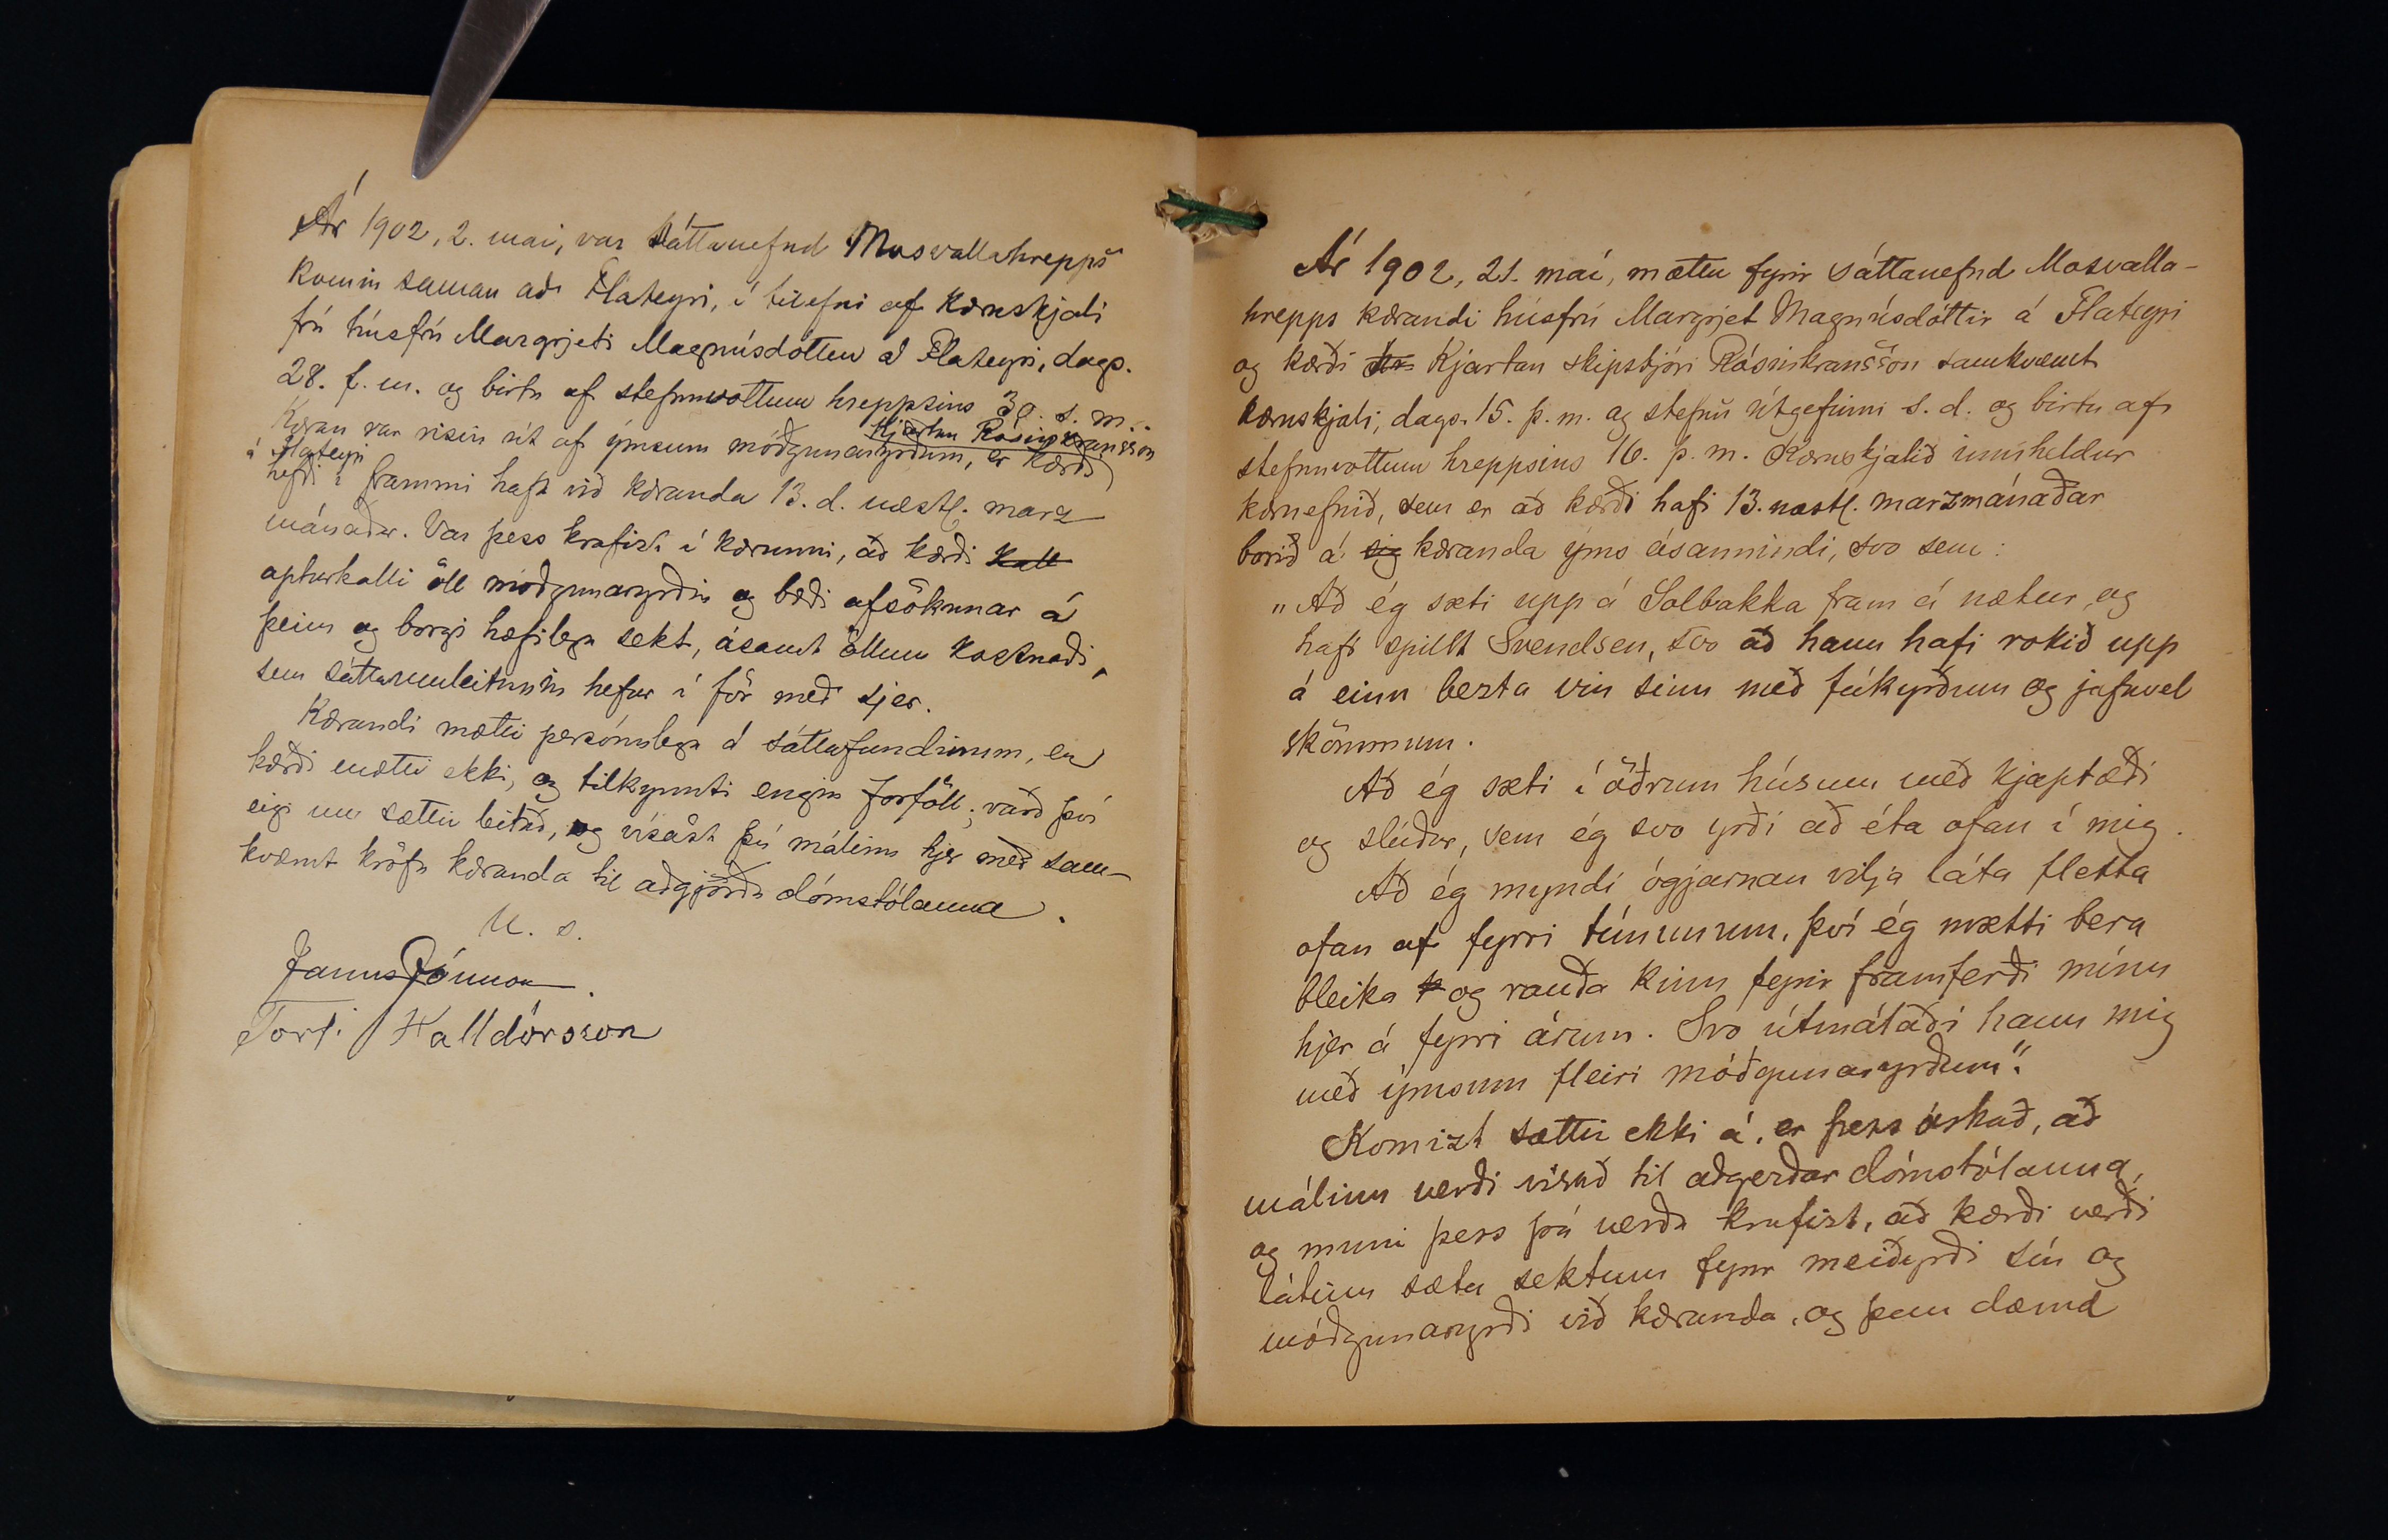 Ár 1902, 2. mai, var sáttanefnd Mosvallahrepps
komin saman að Flateyri, í tilefni af kæruskjali
frá húsfrú Margrjeti Magnúsdóttur á Flateyri, dags.
28. f. m. og birtu af stefnuvottum hreppsins 30. s. m.
Kjartan Rósinkransson
Kæran var risin út af ýmsum móðgunaryrðum, er kærði
á Flateyri
hefði í frammi haft við kæranda 13. d. næstl. marz
mánaðar. Var þess krafist í kærunni, að kærði kall
apturkalli öll móðgunaryrðin og bæði afsökunar á
þeim og borgi hæfilega sekt, ásamt öllum kostnaði,
sem sáttaumleitunin hefur í för með sjer.
Kærandi mætti persónulega á sáttafundinum, en
kærði mætti ekki, og tilkynnti engin forföll; varð því
eigi um sættir leitað, og vísast því málinu hjer með sam-
kvæmt kröfu kæranda til aðgjörða dómstólanna.
U. s.
Jannus Jónsson.
Torfi Halldórsson
Ár 1902, 21. maí, mættu fyrir sáttanefnd Mosvalla-
hrepps kærandi húsfrú Margrjet Magnúsdóttir á Flateyri
og kærði Kjartan skipstjóri Rósinkransson samkvæmt
kæruskjali, dags. 15. þ. m. og stefnu útgefinni s. d. og birtu af
stefnuvottum hreppsins 16. þ. m. Kæruskjalið inniheldur
kæruefnið, sem er að kærði hafi 13. næstl. marzmánaðar
borið á sig kæranda ýms ósannindi, svo sem:
„Að ég sæti upp á Sólbakka fram á nætur, og
hafi spillt Svendsen, svo að hann hafi rokið upp
á einn bezta vin sinn með fúkyrðum og jafnvel
skömmum.
Að ég sæti í öðrum húsum með kjaptæði
og slúður, sem ég svo yrði að éta ofan í mig.
Að ég myndi ógjarnan vilja láta fletta
ofan af fyrri tímunum, því ég mætti bera
bleika og rauða kinn fyrir framferði mínu
hjer á fyrri árum. Svo útmálaði hann mig
með ýmsum fleiri móðgunaryrðum“.
Komizt sættir ekki á, er þess óskað, að
málinu verði vísað til aðgerðar dómstólanna,
og muni þess þá verða krafizt, að kærði verði
látinn sæta sektum fyrir meiðyrði sín og
móðgunaryrði við kæranda, og þau dæmd